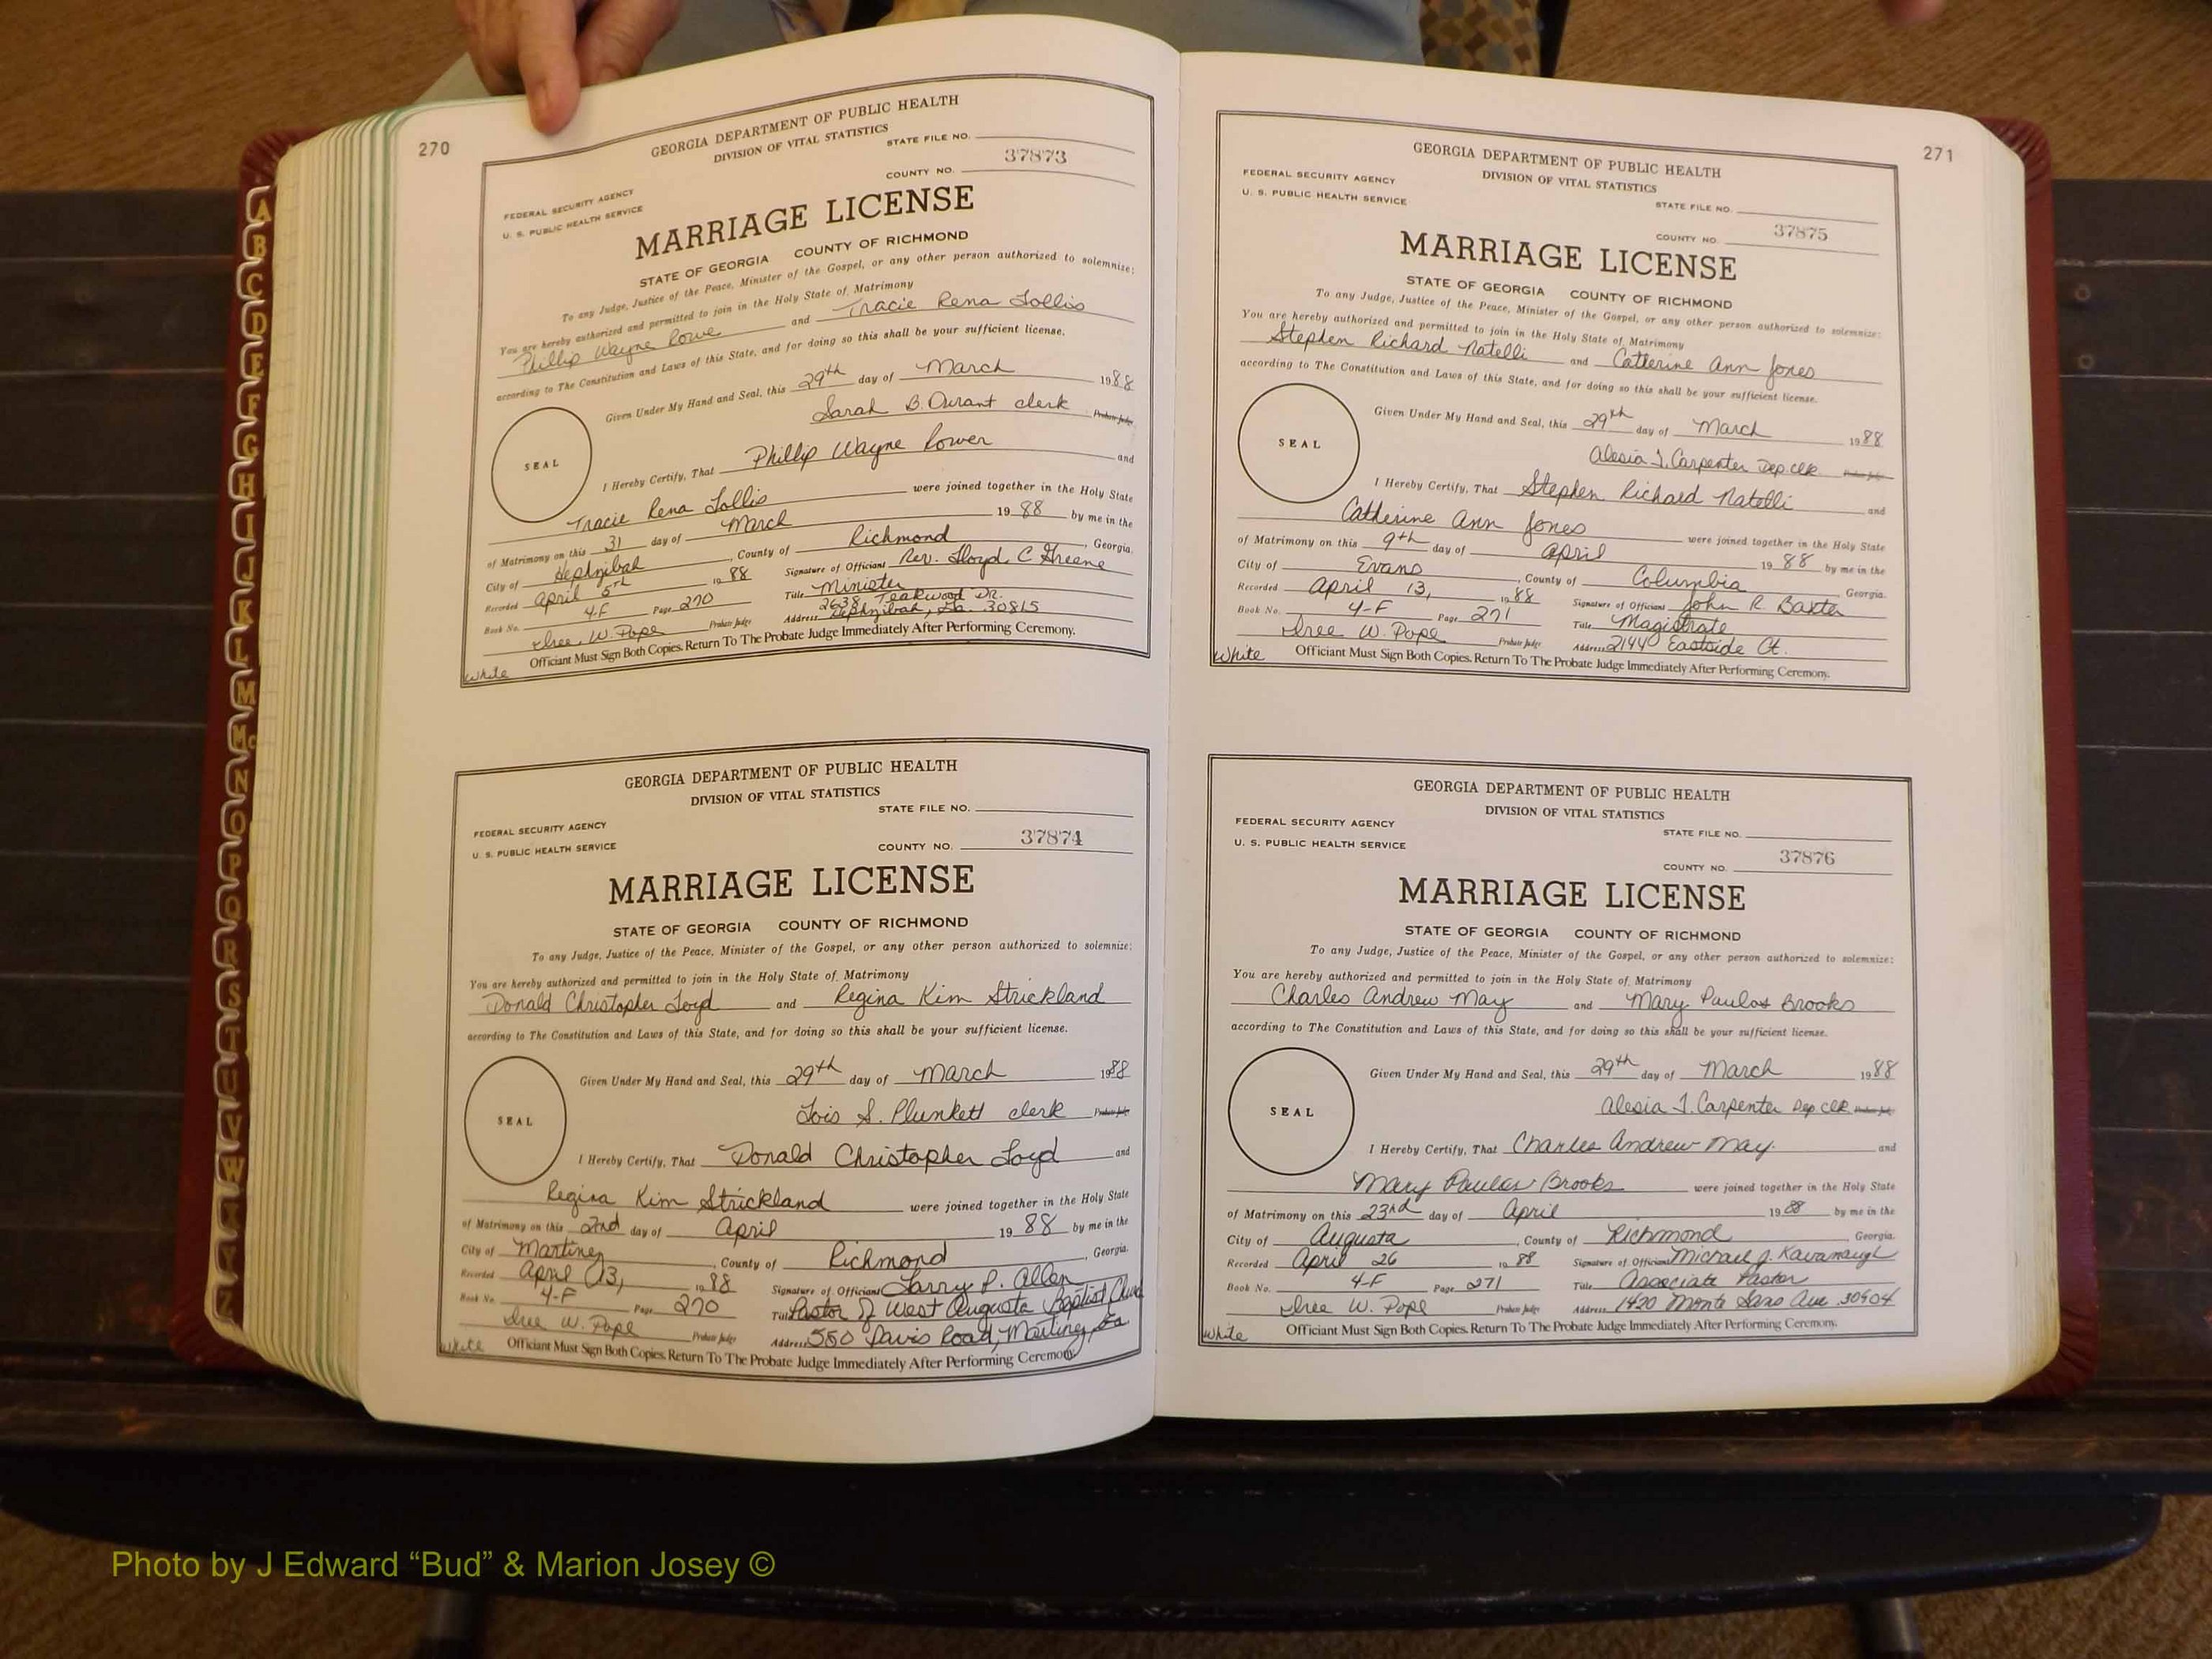 270
GEORGIA DEPARTMENT OF PUBLIC HEALTH
DIVISION OF VITAL STATISTICS
STATE FILE NO.
37873
COUNTY NO.
FEDERAL SECURITY AGENCY
U. S. PUBLIC HEALTH SERVICE
MARRIAGE LICENSE
STATE OF GEORGIA COUNTY OF RICHMOND
To any Judge, Justice of the Peace, Minister of the Gospel, or any other person authorized to solemnize:
You are hereby authorized and permitted to join in the Holy State of Matrimony
Phillip Wayne Rowe and Tracie Rena Tollis
according to The Constitution and Laws of this State, and for doing so this shall be your sufficient license.
Given Under My Hand and Seal, this 29th day of March 1988
Sarah B. Durant clerk Probate Judge
SEAL
I Hereby Certify, That Phillip Wayne Rower and
Tracie Rena Tollis were joined together in the Holy State
of Matrimony on this 31 day of March 19 88 by me in the
City of Hephzibah, County of Richmond, Georgia.
Recorded April 5th 19 88 Signature of Officiant Rev. Lloyd C Greene
Book No. 4-F Page 270 Title Minister
2638 Teakwood Dr.
Address Hephzibah, Ga. 30815
W. Pope Probate Judge
Officiant Must Sign Both Copies. Return To The Probate Judge Immediately After Performing Ceremony.
White
GEORGIA DEPARTMENT OF PUBLIC HEALTH
DIVISION OF VITAL STATISTICS
STATE FILE NO.
FEDERAL SECURITY AGENCY
U. S. PUBLIC HEALTH SERVICE
COUNTY NO. 37874
MARRIAGE LICENSE
STATE OF GEORGIA COUNTY OF RICHMOND
To any Judge, Justice of the Peace, Minister of the Gospel, or any other person authorized to solemnize:
You are hereby authorized and permitted to join in the Holy State of Matrimony
Donald Christopher Loyd and Regina Kim Strickland
according to The Constitution and Laws of this State, and for doing so this shall be your sufficient license.
Given Under My Hand and Seal, this 29th day of March 1988
Lois S. Plunkett clerk Probate Judge
SEAL
I Hereby Certify, That Donald Christopher Loyd and
Regina Kim Strickland were joined together in the Holy State
of Matrimony on this 2nd day of April 19 88 by me in the
City of Martinez, County of Richmond, Georgia.
Recorded April 13, 19 88 Signature of Officiant Larry P. Allen
Book No. 4-F Page 270 Title Pastor of West Augusta Baptist
W. Pope Probate Judge Address 550 Davis Road, Martinez, Ga
Officiant Must Sign Both Copies. Return To The Probate Judge Immediately After Performing Ceremony.
White
271
GEORGIA DEPARTMENT OF PUBLIC HEALTH
DIVISION OF VITAL STATISTICS
FEDERAL SECURITY AGENCY
U. S. PUBLIC HEALTH SERVICE
STATE FILE NO.
COUNTY NO. 37875
MARRIAGE LICENSE
STATE OF GEORGIA COUNTY OF RICHMOND
To any Judge, Justice of the Peace, Minister of the Gospel, or any other person authorized to solemnize:
You are hereby authorized and permitted to join in the Holy State of Matrimony
Stephen Richard Natelli and Catherine Ann Jones
according to The Constitution and Laws of this State, and for doing so this shall be your sufficient license.
Given Under My Hand and Seal, this 29th day of March 1988
Alesia J. Carpenter Dep clk Probate Judge
SEAL
I Hereby Certify, That Stephen Richard Natelli and
Catherine Ann Jones were joined together in the Holy State
of Matrimony on this 9th day of April 19 88 by me in the
City of Evans, County of Columbia Georgia.
Recorded April 13, 19 88 Signature of Officiant John R. Baxter
Book No. 4-F Page 271 Title Magistrate
W. Pope Probate Judge Address 2144 Eastside Ct.
Officiant Must Sign Both Copies. Return To The Probate Judge Immediately After Performing Ceremony.
White
GEORGIA DEPARTMENT OF PUBLIC HEALTH
DIVISION OF VITAL STATISTICS
FEDERAL SECURITY AGENCY
STATE FILE NO.
U. S. PUBLIC HEALTH SERVICE
COUNTY NO. 37876
MARRIAGE LICENSE
STATE OF GEORGIA COUNTY OF RICHMOND
To any Judge, Justice of the Peace, Minister of the Gospel, or any other person authorized to solemnize:
You are hereby authorized and permitted to join in the Holy State of Matrimony
Charles Andrew May and Mary Paulas Brooks
according to The Constitution and Laws of this State, and for doing so this shall be your sufficient license.
Given Under My Hand and Seal, this 29th day of March 1988
Alesia J. Carpenter Dep clk Probate Judge
SEAL
I Hereby Certify, That Charles Andrew May and
Mary Paulas Brooks were joined together in the Holy State
of Matrimony on this 23rd day of April 19 88 by me in the
City of Augusta, County of Richmond Georgia.
Recorded April 26 19 88 Signature of Officiant Michael J. Kavanaugh
Book No. 4-F Page 271 Title Associate Pastor
W. Pope Probate Judge Address 1420 Monte Sano Ave 30904
Officiant Must Sign Both Copies. Return To The Probate Judge Immediately After Performing Ceremony.
White
A
B
C
D
E
F
G
H
I
J
K
L
M
Mc
N
O
P
Q
R
S
T
U
V
W
Photo by J Edward “Bud” & Marion Josey ©